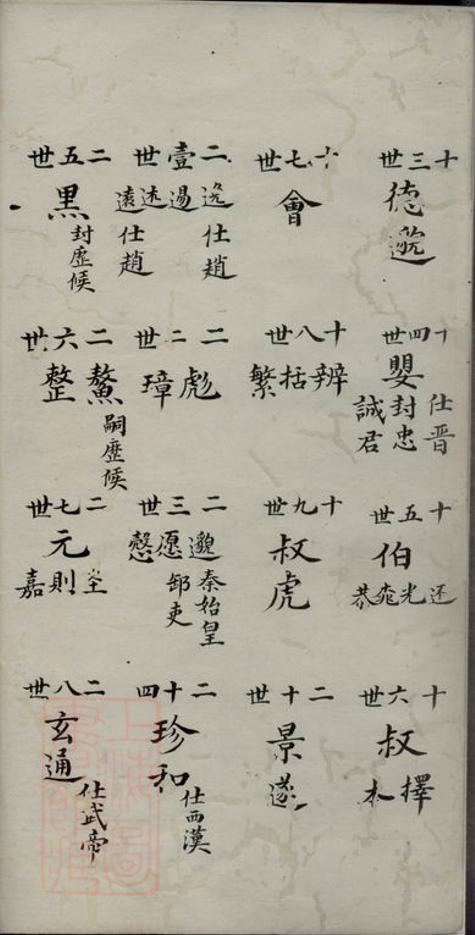 十三世
德邈
十四世
嬰
仕晋
封忠
誠君
十五世
伯
还光恭
十六世
叔
擇本
十七世
會
十八世
辨括繁
十九世
叔虎
二十世
景遂
二壹世
逸仕趙
逷
遠仕趙
二二世
彪璋
二三世
邈愿慤
秦始皇
御吏
二十四
珍和
仕西漢
二五世
黑
封歷候
二六世
鰲整
嗣歷候
二七世
元
則嘉
二八世
玄通
仕武帝